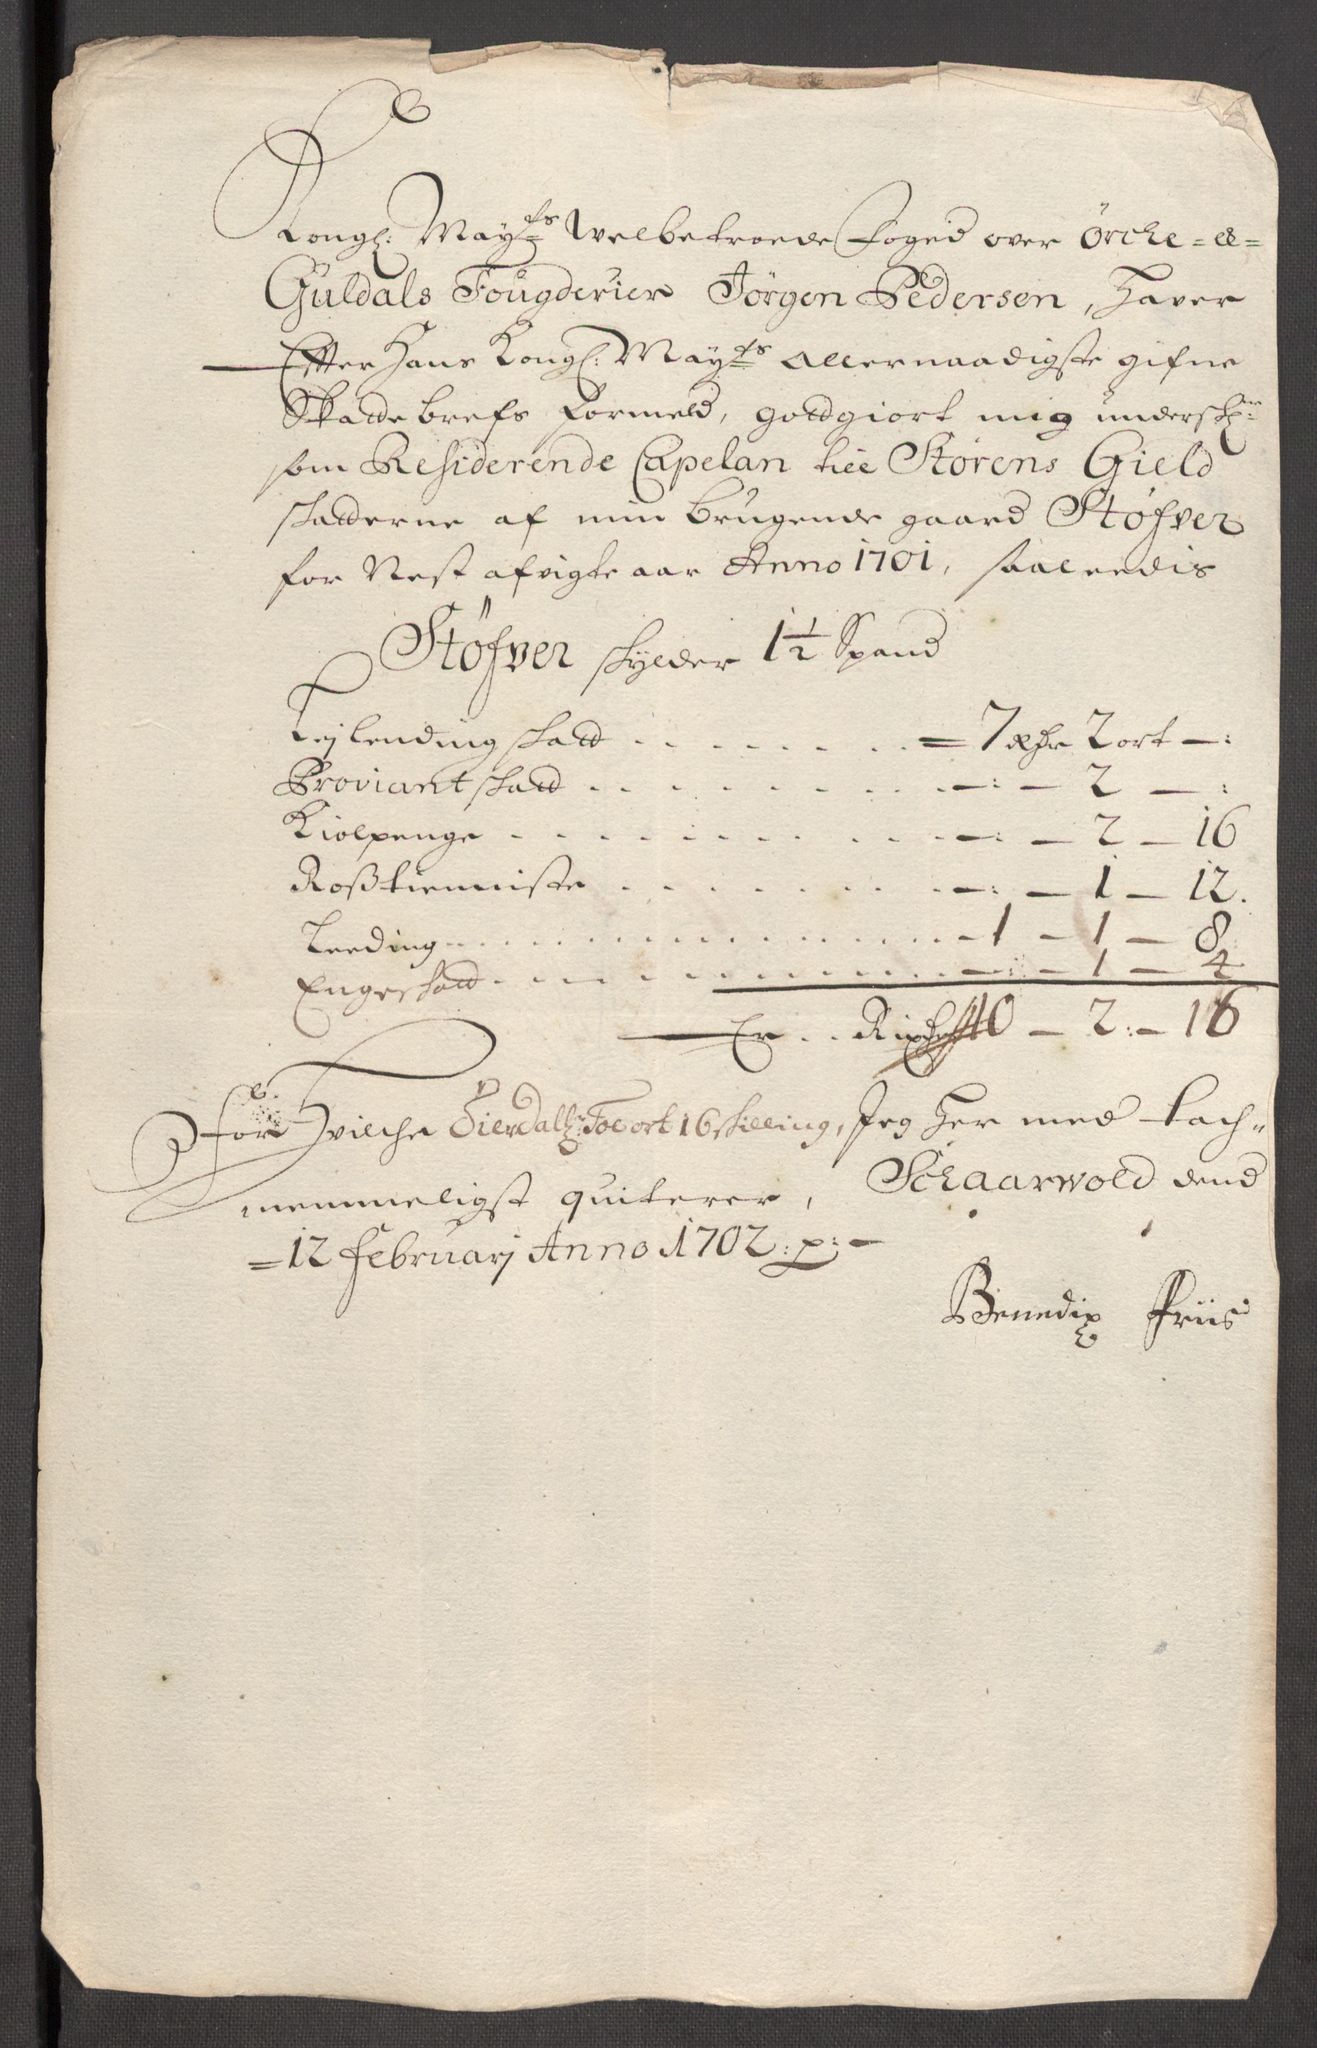 Kongl: May:ts Welbetroede Foged over Örcke = &=
Guldals Fougderier Jörgen Pedersen, Haver
Efter Hans Kongl: May:ts allernaadigste gifne
Skattebrefs formeld, gotdgiort mig undersch:
som Residerende Capelan till Störens Gield
skatterne af min brugende gaard Stöfver
for Nest afvigte aar Anno 1701, saaleedis
Stöfver skylder 1½ Spand
Lejlending skatt . . . . . . . = 7 rdr 2 ort —:
Proviant skatt . . . . . . . —: — 2 — :
Kiolpenge . . . . . . . —: — 2 — 16
Roßtienniste . . . . . . . —: — 1 — 12.
Leeding . . . . . . . 1 — 1 — 8
Engeskatt . . . . . . . —: — 1 — 4
Er . . 10 — 2: — 16
For Hvilche Tolf ort 16 skilling, Jeg Her med tach=
nemmeligst quiterer, Schaarwold dend
= 12 Februarj Anno 1702 : p: —
Benedix Friis